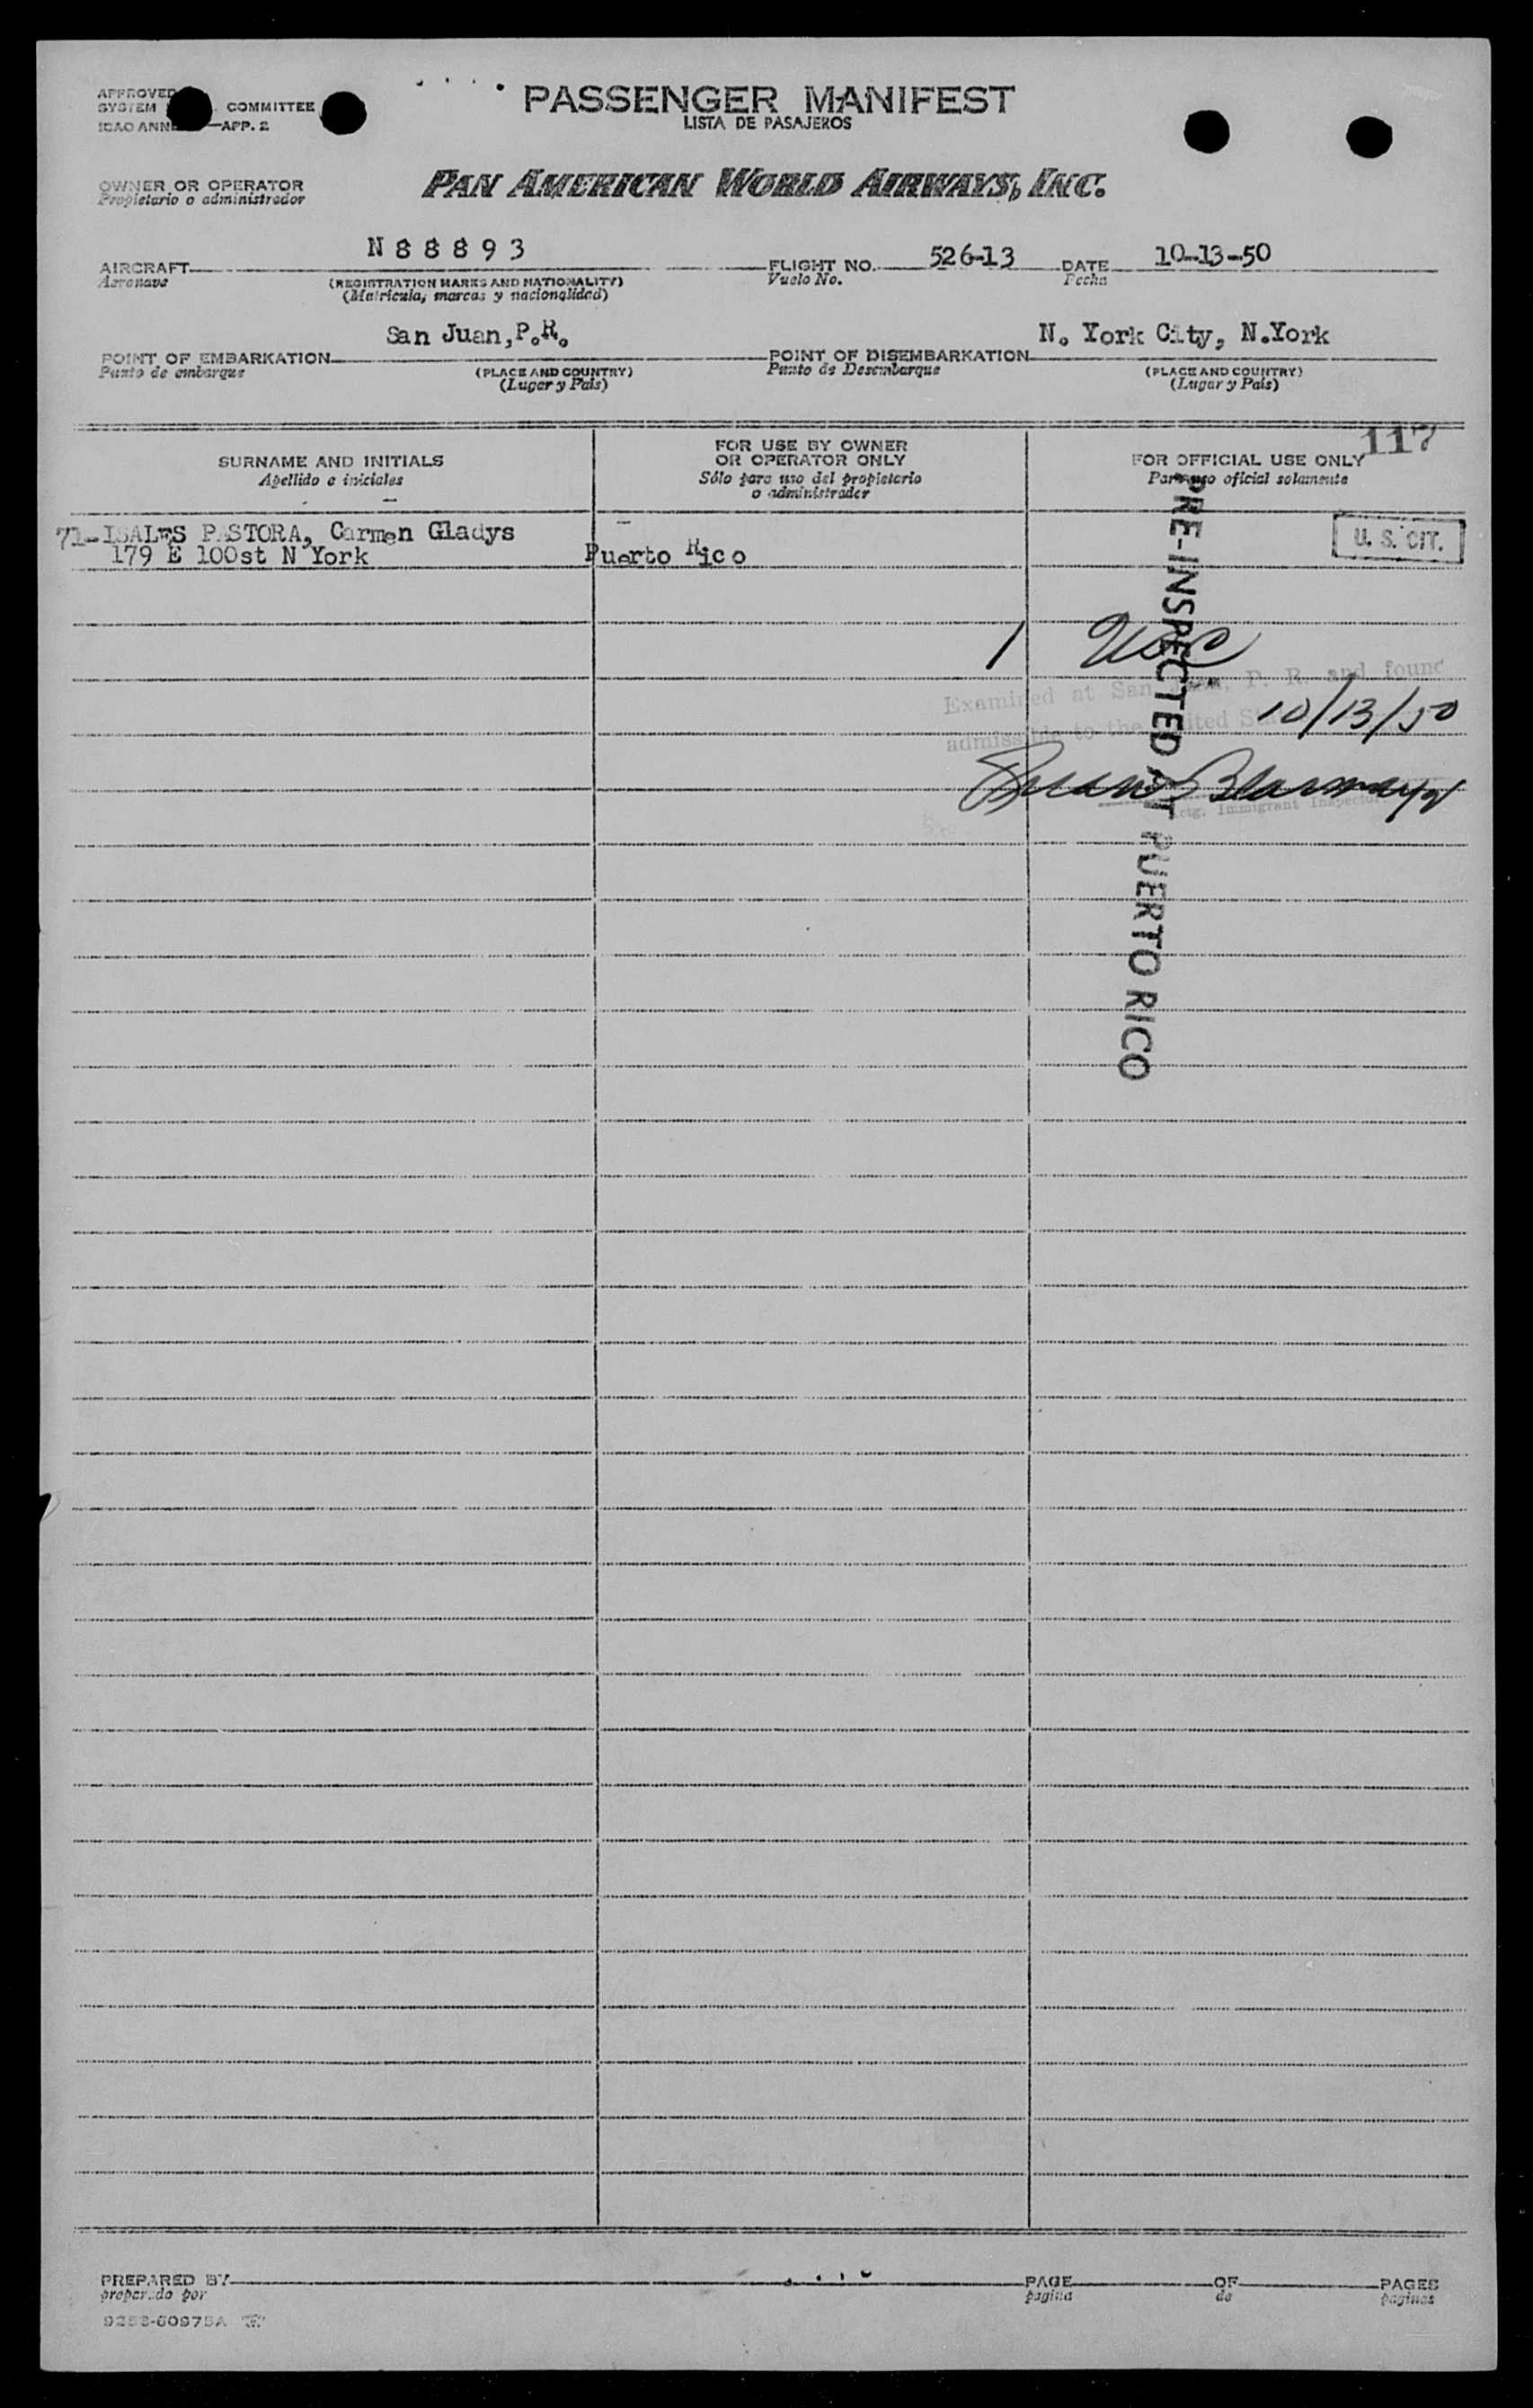 APPROVED
SYSTEM COMMITTEE
ICAO ANNE —APP. 2
PASSENGER MANIFEST
LISTA DE PASAJEROS
OWNER OR OPERATOR
Propietario o administrador
PAN AMERICAN WORLD AIRWAYS, INC.
AIRCRAFT N 8 8 8 9 3 FLIGHT NO. 526-13 DATE 10-13-50
Aeronave (REGISTRATION MARKS AND NATIONALITY) Vuelo No. Fecha
(Matricula, marcas y nacionalidad)
POINT OF EMBARKATION San Juan,P.R. POINT OF DISEMBARKATION N. York City, N.York
Punto de embarque (PLACE AND COUNTRY) Punto de Desembarque (PLACE AND COUNTRY)
(Lugar y País) (Lugar y País)
117
SURNAME AND INITIALS
Apellido e iniciales
FOR USE BY OWNER
OR OPERATOR ONLY
Sólo para uso del propietario
o administrador
FOR OFFICIAL USE ONLY
Para uso oficial solamente
71-ISALES PASTORA, Carmen Gladys
179 E 100st N York Puerto Rico
U. S. CIT.
PRE-INSPECTED AT PUERTO RICO
1 USC
Examined at San Juan, P. R. and found
admissible to the United States
10/13/50
Actg. Immigrant Inspector
PREPARED BY PAGE OF PAGES
preparado por pagina de paginas
9253-60975A